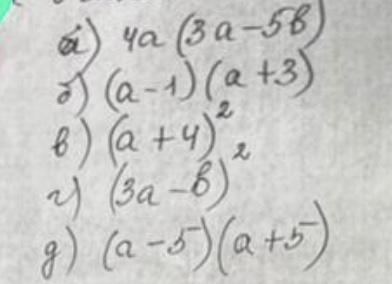 а) 4a (3a-5b)
б) (a-1)(a+3)
в) (a+4)²
г) (3a-b)²
д) (a-5)(a+5)